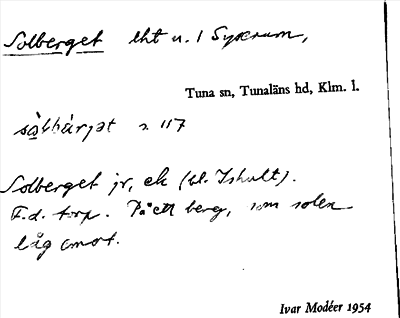 Solberget lht u. 1 Syserum,
Tuna sn, Tunaläns hd, Klm. l.
s. 117
Solberget jr, ek (bl. Ishult).
F.d. torp. På ett berg, som solen
låg emot.
Ivar Modéer 1954